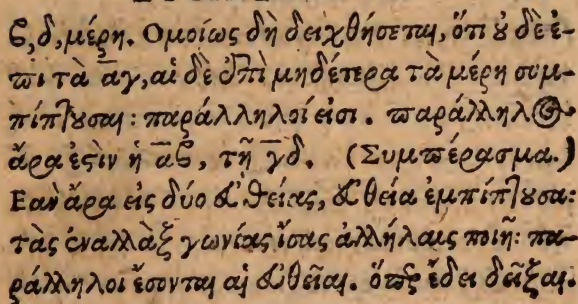 ϐ, δ, μέρη. Ομοίως δὴ δειχθήσεται, ὅτι ὐ δὲ ἐ-
πι τὰ α͞γ, αἱ δὲ ἐπὶ μηδέτερα τὰ μέρη συμ-
πίπτουσαι: παράλληλοί εἰσι. παράλληλος
ἄρα ἐστὶν ἡ α͞ϐ, τῇ γ͞δ. (Συμπέρασμα.)
Εαὶ ἄρα εἰς δύο εὐθείας, εὐθεῖα ἐμπίπτουσα:
τὰς ἐναλλὰξ γωνίας ἴσας ἀλλήλαις ποιῇ: πα-
ράλληλοι ἔσονται αἱ εὐθεῖαι. ὅπερ ἔδει δεῖξαι.